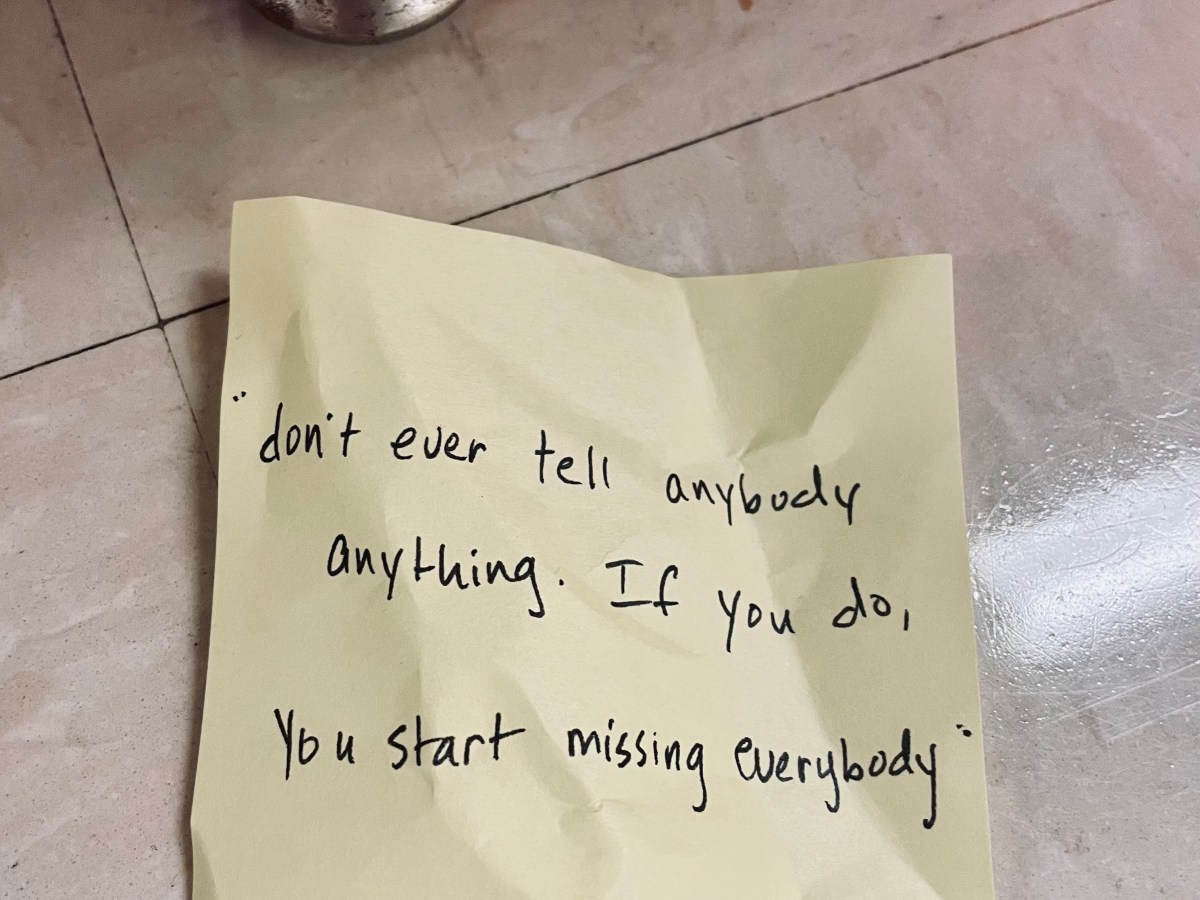 "don't ever tell anybody
anything. If you do,
You start missing everybody"